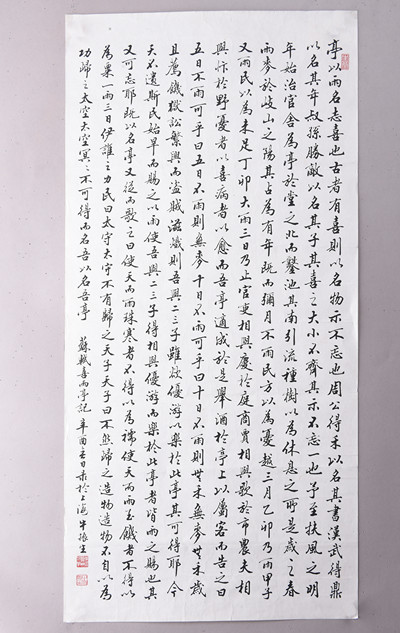 亭以雨名志喜也古者有喜則以名物示不忘也周公得禾以名其書漢武得鼎
以名其年叔孫勝敵以名其子其喜之大小不齊其示不忘一也予至扶風之明
年始治官舍為亭於堂之北而鑿池其南引流種樹以為休息之所是歲之春
雨麥於岐山之陽其占為有年既而彌月不雨民方以為憂越三月乙卯乃雨甲子
又雨民以為未足丁卯大雨三日乃止官吏相與慶於庭商賈相與歌於市農夫相
與忭於野憂者以喜病者以愈而吾亭適成於是舉酒於亭上以屬客而告之曰
五日不雨可乎曰五日不雨則無麥十日不雨可乎曰十日不雨則無禾無麥無禾歲
且薦饑獄訟繁興而盜賊滋熾則吾與二三子雖欲優游以樂於此亭其可得耶今
天不遺斯民始旱而賜之以雨使吾與二三子得相與優游而樂於此亭者皆雨之賜也其
又可忘耶既以名亭又從而歌之曰使天而雨珠寒者不得以為襦使天而雨玉饑者不得以
為粟一雨三日伊誰之力民曰太守太守不有歸之天子天子曰不然歸之造物造物不自以為
功歸之太空太空冥冥不可得而名吾以名吾亭 蘇軾喜雨亭記 辛酉 日錄於上海牛振生